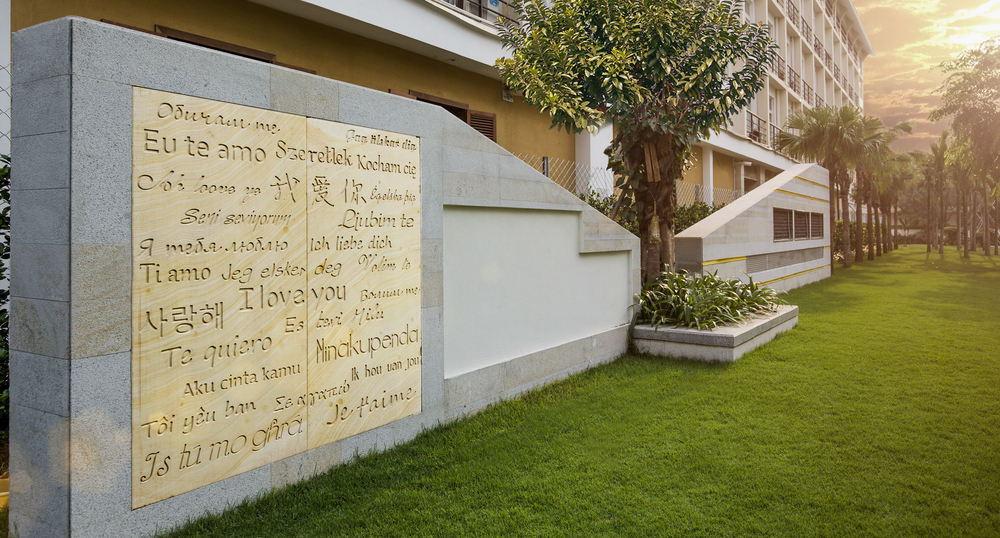 Обичам те
Eu te amo Szeretlek Kocham cię
我 爱 你
Seni seviyorum Ljubim te
Я тебя люблю Ich liebe dich
Ti amo Jeg elsker deg Volim te
사랑해 I love you
Es tevi Milu
Te quiero Ninakupenda
Aku cinta kamu Ik hou van jou
Tôi yêu bạn Je t'aime
Is tú mo ghrá